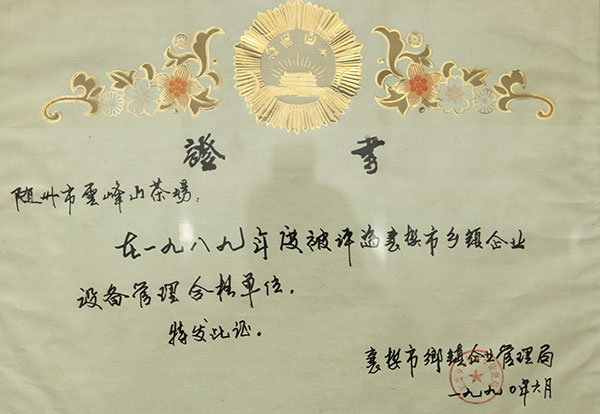 證書
随州市雲峰山茶場：
在一九八九年度被评为襄樊市乡镇企业
设备管理合格单位。
特发此证。
襄樊市鄉镇企业管理局
一九九〇年六月